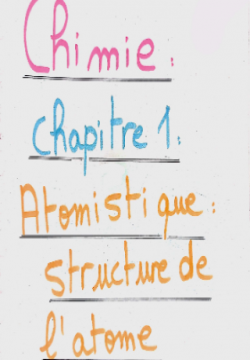 Chimie :
chapitre 1 :
Atomistique :
structure de
l'atome